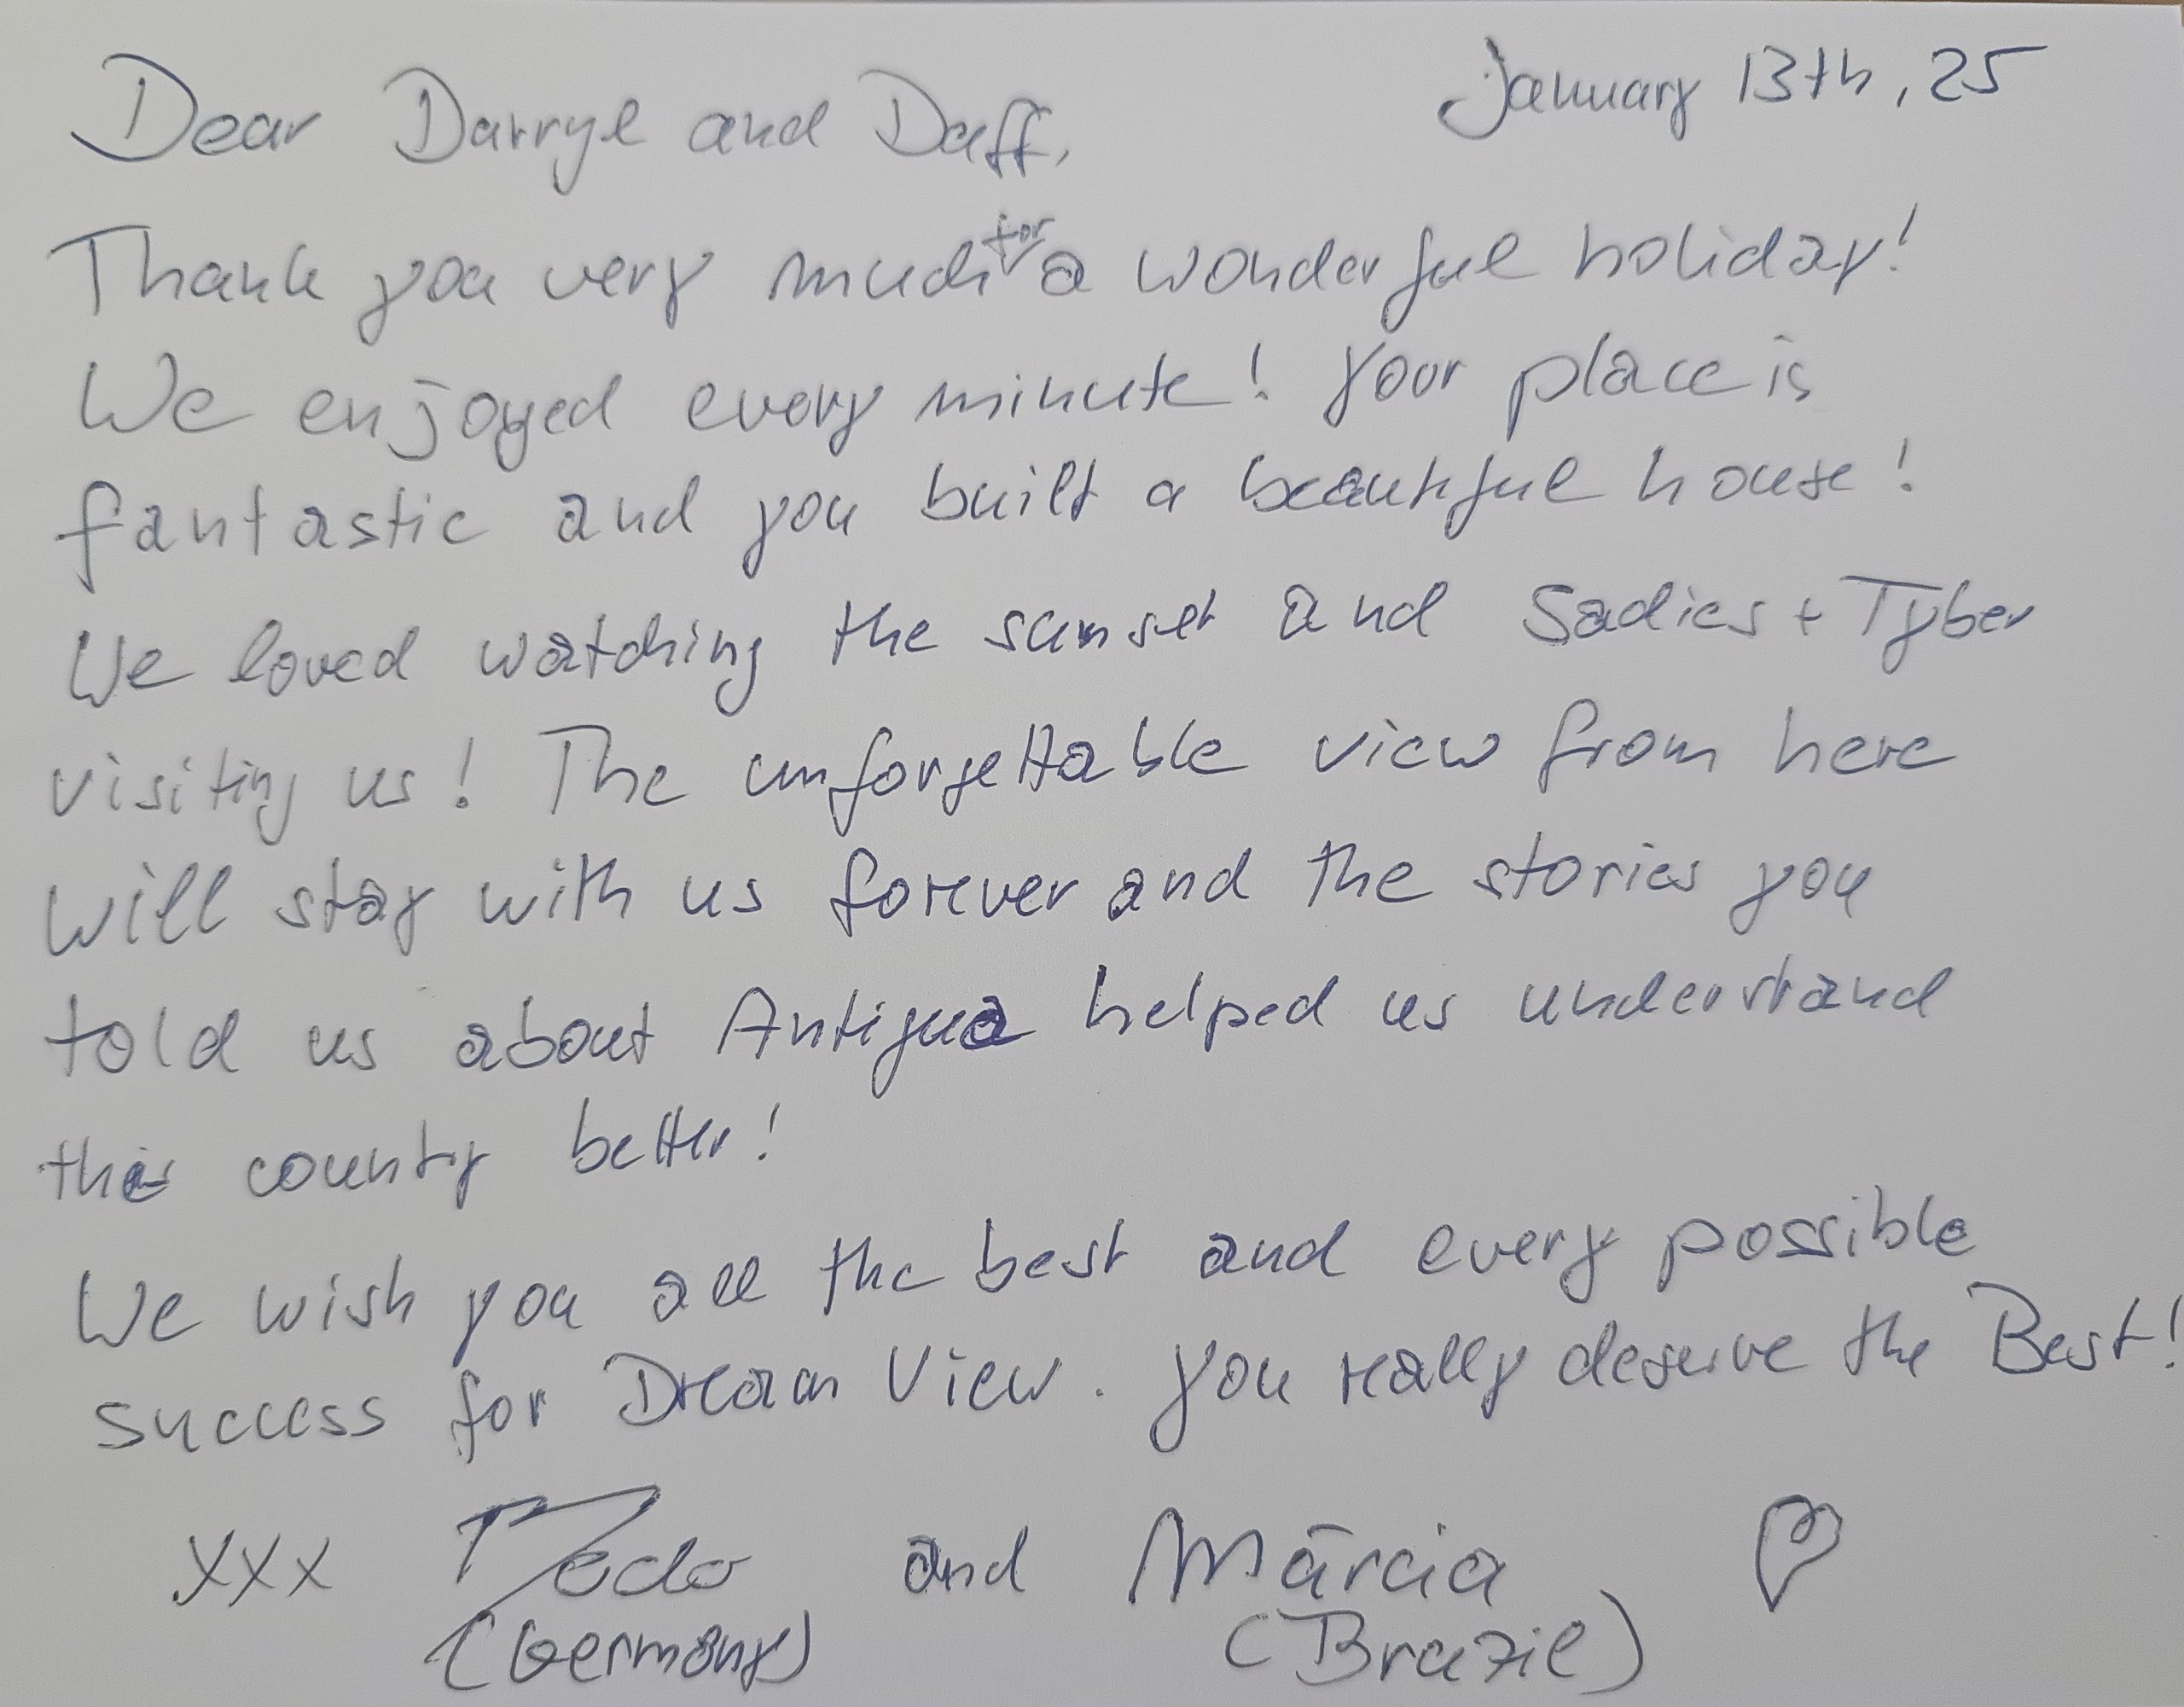 January 13th, 25
Dear Darryl and Daff,
Thank you very much for a wonderful holiday!
We enjoyed every minute! Your place is
fantastic and you built a beautiful house!
We loved watching the sunset and Sadies + Tyber
visiting us! The unforgettable view from here
will stay with us forever and the stories you
told us about Antigua helped us understand
this county better!
We wish you all the best and every possible
success for Dream View. You really deserve the Best!
xxx and Márcia
(Germany) (Brazil)